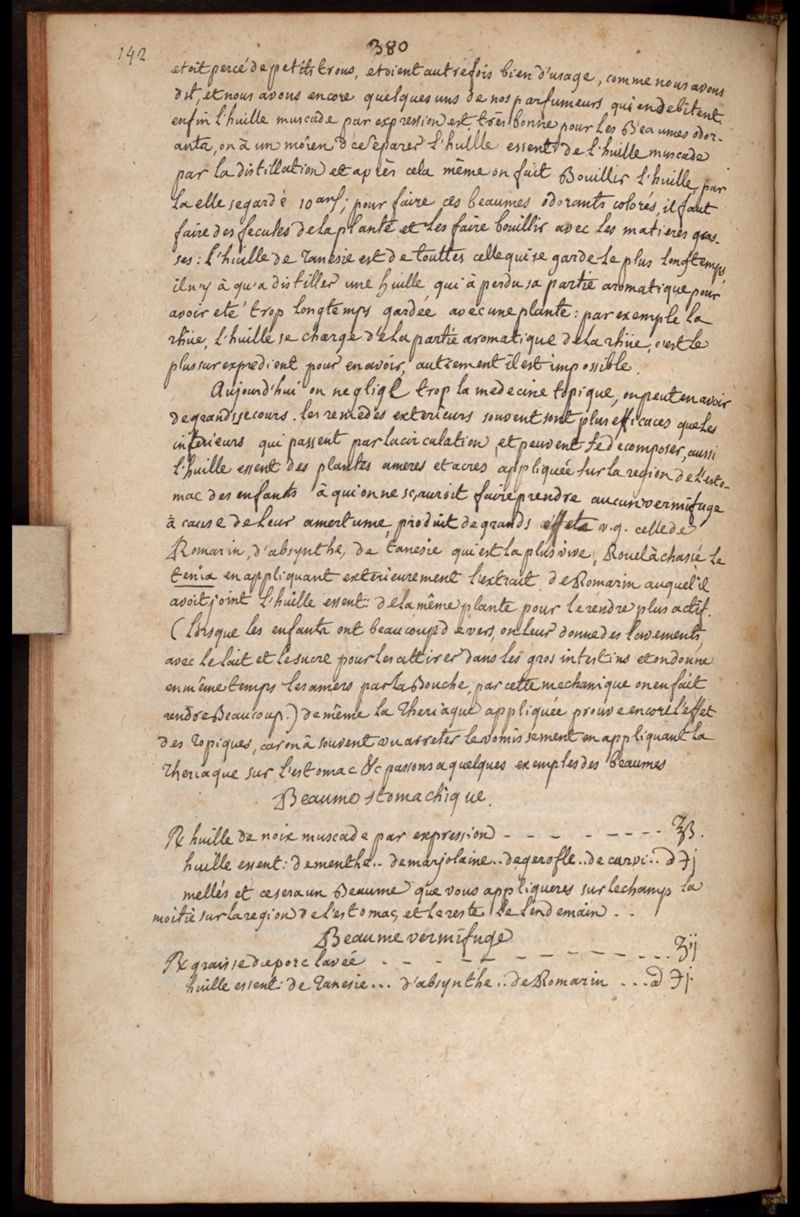 142
380
etoit percé de petits trous, etoient autrefois bien d'usage, comme nous avons
dit, et nous avons encore quelques uns de nos parfumeurs qui en debitent
enfin l'huille muscade par expression est très bonne pour les Beaumes odor-
ants, on à un moïen de separer l'huille essent: de l'huille muscade
par la distillation et après cela même on fait Bouillir l'huille, par
la elle se garde 10 ans; pour faire ces beaumes odorants colorés, il faut
faire des fecules de la plante et les faire bouillir avec les matieres gras-
ses: l'huille de Tanesie est de touttes celle qui se garde le plus longtemps
il n'y à qu'a distiller une huille qui à perdu sa partie aromatique pour
avoir eté trop longtemps gardée avec une plante: par exemple la
rhüe, l'huille se charge de la partie aromatique de la rhüe, c'est le
plus sur expredient pour en avoir, autrement il est impossible.
Aujourd'hui on neglige trop la medecine topique, on peut en avoir
de grands secours. les remedes exterieurs souvent sont plus efficaces que les
interieurs qui passent par la circulation, et peuvent se decomposer, aussi
l'huille essent: des plantes ameres et acres appliquée sur la region de l'esto-
mac des enfants à qui on ne sçauroit faire prendre aucun vermifuge
à cause de leur amertume, produit de grands effets v.g. celle de
Romarin, d'absynthe, de tanesie qui est la plus vive, Rouel à chassé le
tenia en appliquant exterieurement l'extrait de Romarin auquel il
avoit joint l'huille essent: de la même plante pour le rendre plus actif.
(lorsque les enfants ont beaucoup de vers, on leur donne des lavements
avec le lait et le sucre pour les attirer dans les gros intestins et on donne
en même temps les amers par la Bouche, par cette mechanique on en fait
rendre Beaucoup.) de même la Theriaque appliquée prouve encore l'effet
des Topiques, car on à souvent vu arreter le vomissement en appliquant la
Theriaque sur l'estomac &c passons a quelques exemples des beaumes
Beaume stomachique.
℞ huille de noix muscade par expression - - - - - - - - ʒß.
huille essent: de menthe.. de marjolaine.. de gerofle.. de carvi.. a ℈j
mellés et ce sera un Beaume que vous appliqueres sur le champs la
moitié sur la region de l'estomac, et le reste le lendemain. .
Beaume vermifuge
℞ graisse de porc lavée - - - - - - - - - ... ʒij
huille essent: de Tanesie... d'absynthe.. de Romarin ... a ℈j.